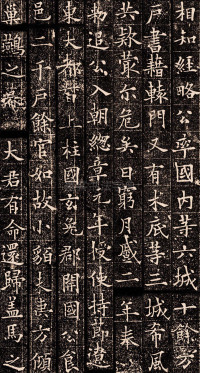 相知經略公率國內等六城十餘万
戶書藉轅門又有木底等三城希風
共款蕞尔危矣日窮月蹙二年奉
勑追公入朝總章元年授使持莭遼
東大都督上柱國玄菟郡開國公食
邑二千戶餘官如故小貊未夷方傾
巢鷰之幕大君有命還歸盖馬之